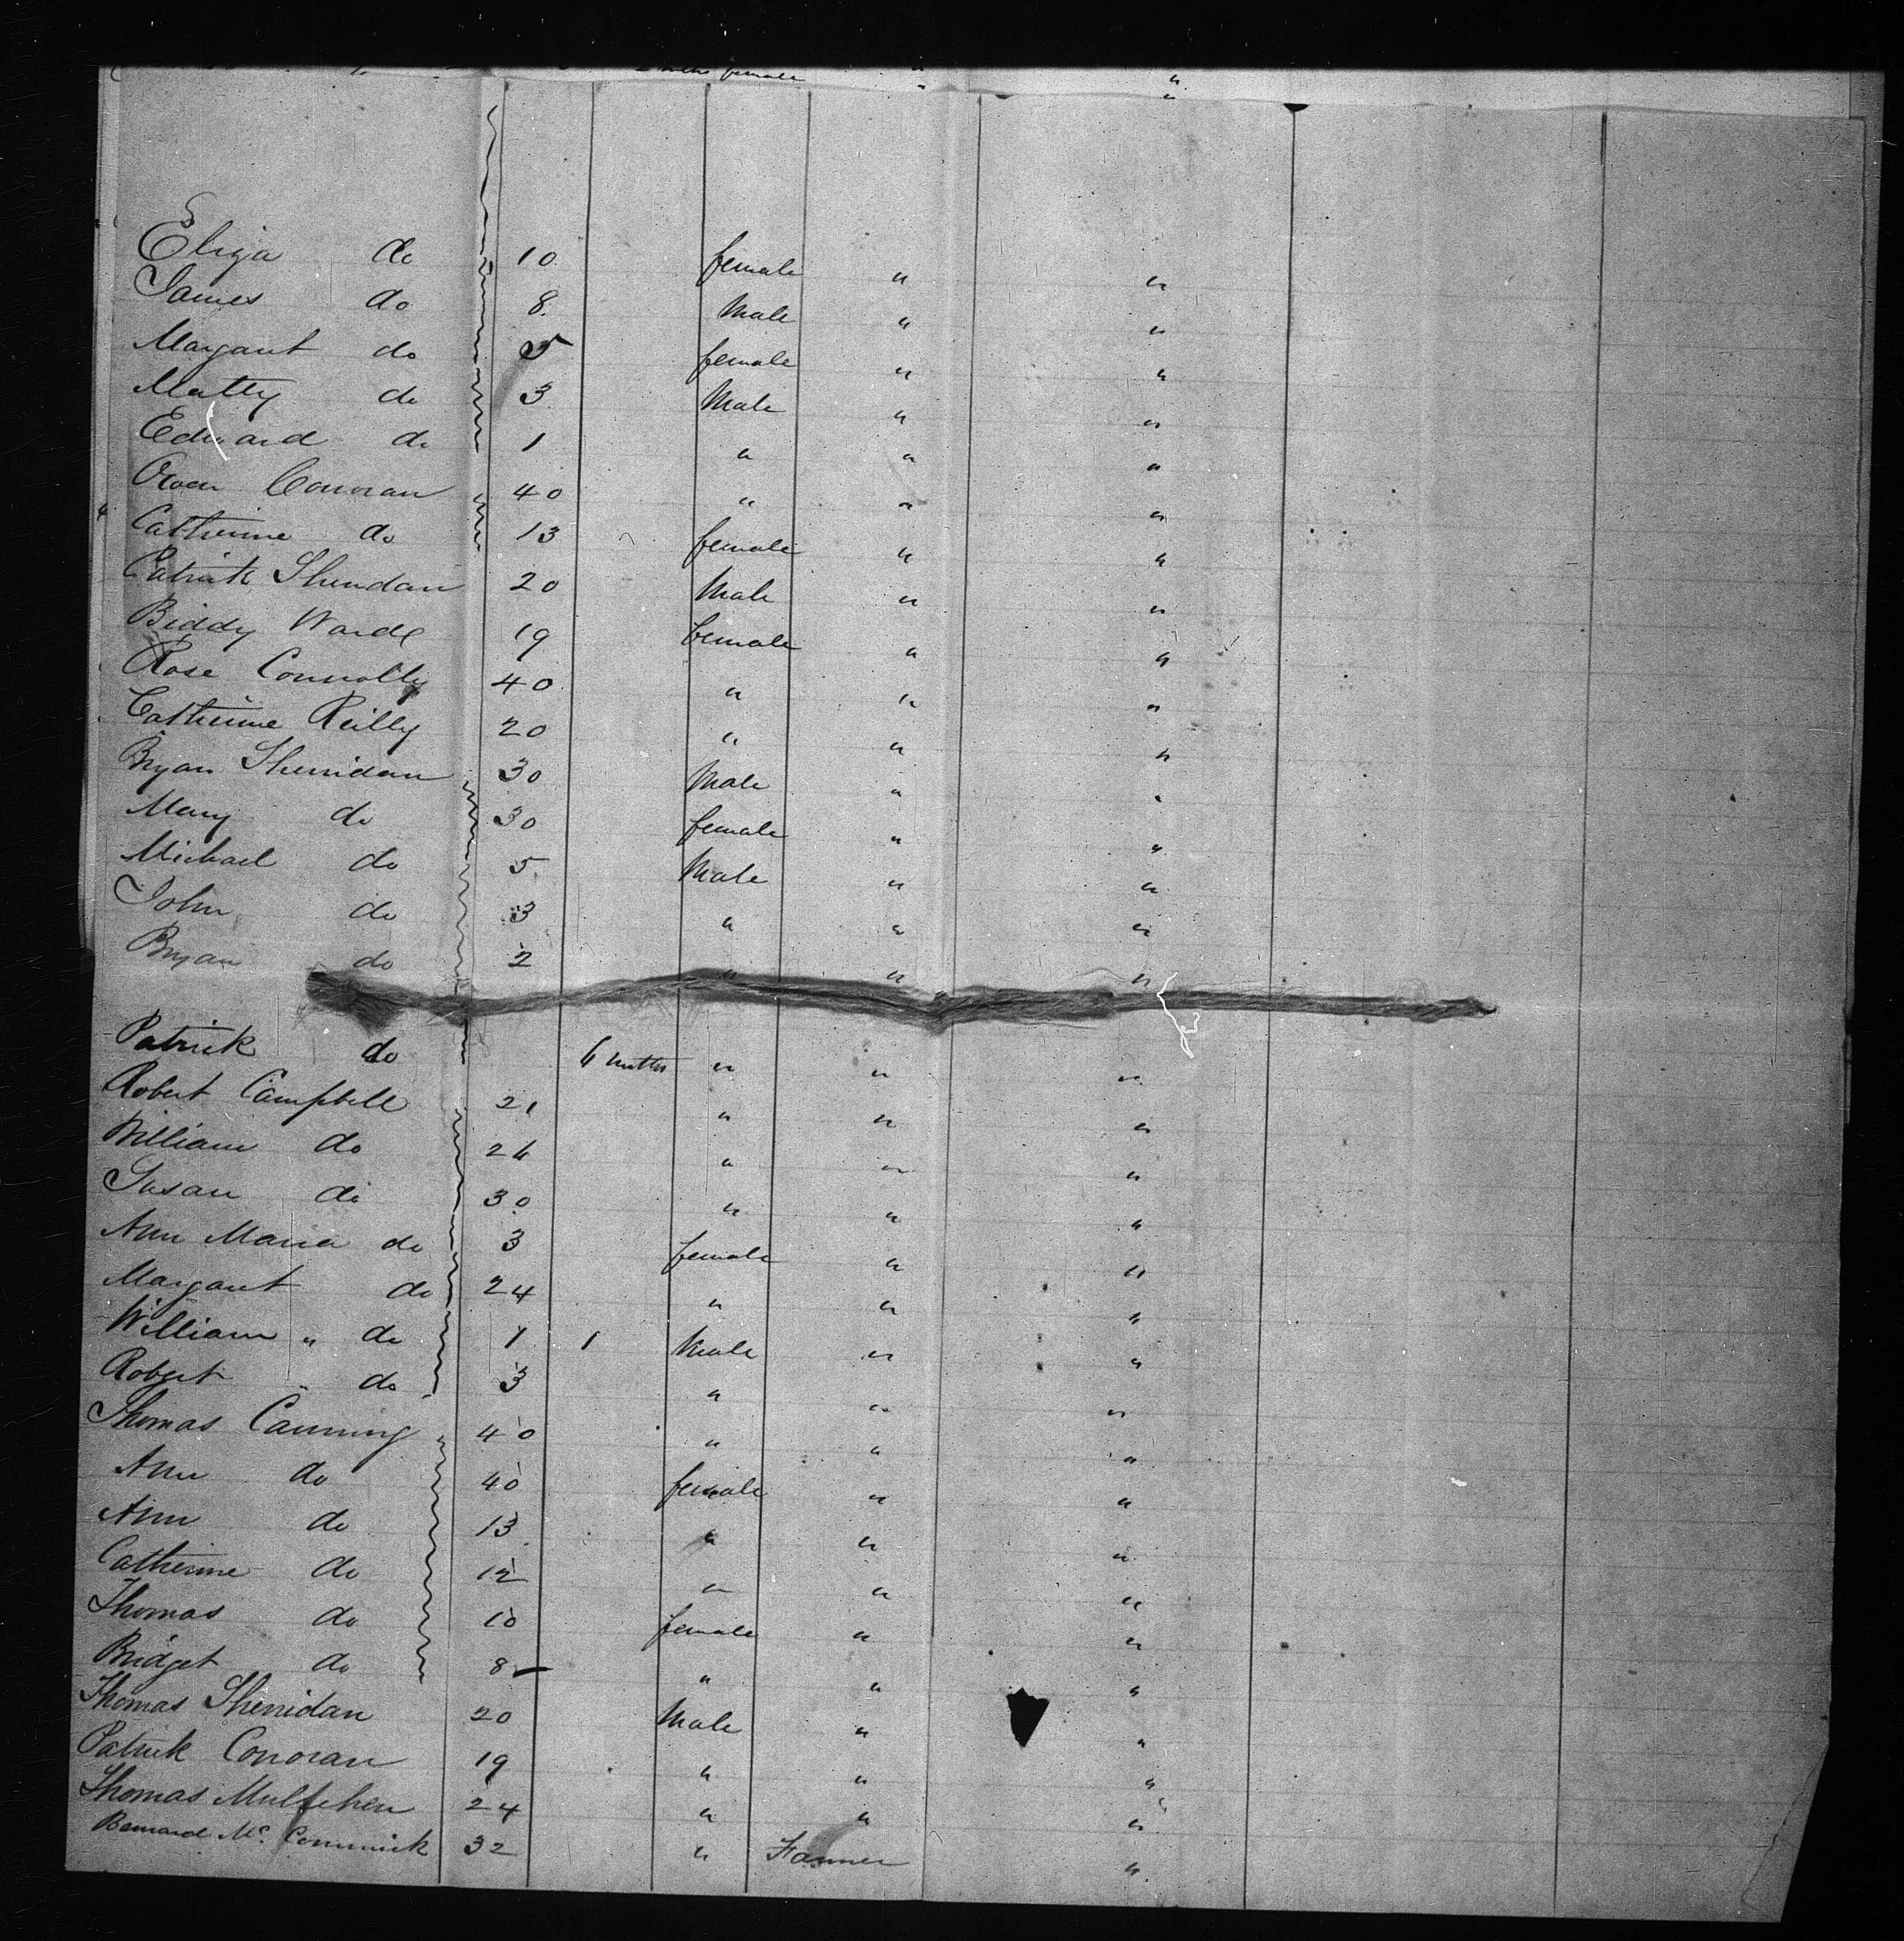 female " "
Eliza do 10 female " "
James do 8 Male " "
Margaret do 5 female " "
Matty do 3 Male " "
Edward do 1 " " "
Owen Conoran 40 " " "
Catherine do 13 female " "
Patrick Sheridan 20 Male " "
Biddy Ward 19 female " "
Rose Connolly 40 " " "
Catherine Reilly 20 " " "
Bryan Sherridan 30 Male " "
Mary do 30 female " "
Michael do 5 Male " "
John do 3 " " "
Bryan do 2 " " "
Patrick do 6 mths " " "
Robert Campbell 21 " " "
William do 26 " " "
Susan do 30 " " "
Ann Maria do 3 female " "
Margaret do 24 " " "
William " do 1 1 Male " "
Robert " do 3 " " "
Thomas Canning 40 " " "
Ann do 40 female " "
Ann do 13 " " "
Catherine do 12 " " "
Thomas do 10 female " "
Bridget do 8 " " "
Thomas Sherridan 20 Male " "
Patrick Conoran 19 " " "
Thomas 24 " " "
Bernard Mc Cormick 32 " Farmer "